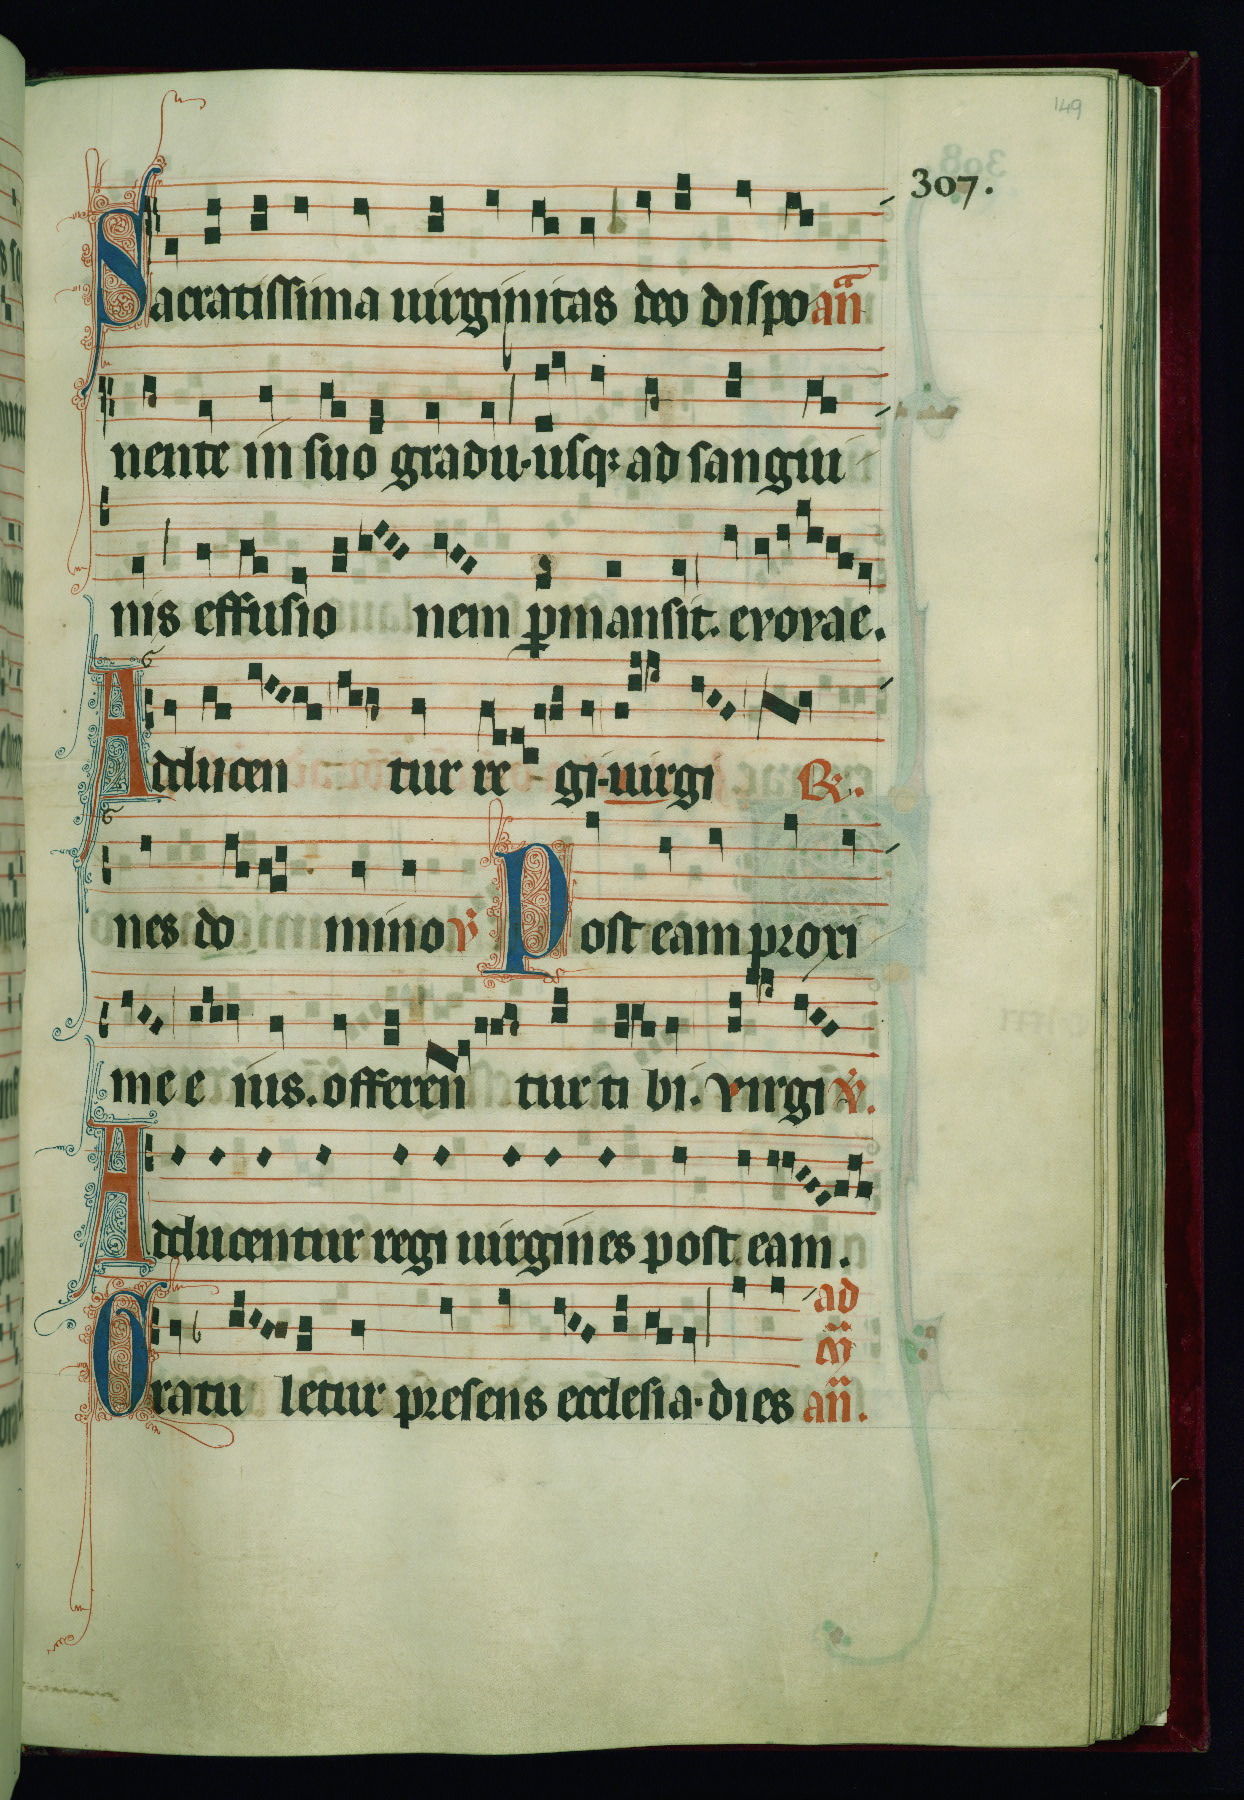 149
307.
Sacratissima uirginitas deo dispo añ
nente in suo gradu·usq; ad sangui
nis effusio nem pmansit. evovae.
Adducen tur re gi·uirgi R̃.
nes do mino ℣ Post eam proxi
me e ius. offeren tur ti bi. virgi ℣.
Adducentur regi uirgines post eam.
ad
Gratu letur presens ecclesia·dies añ.